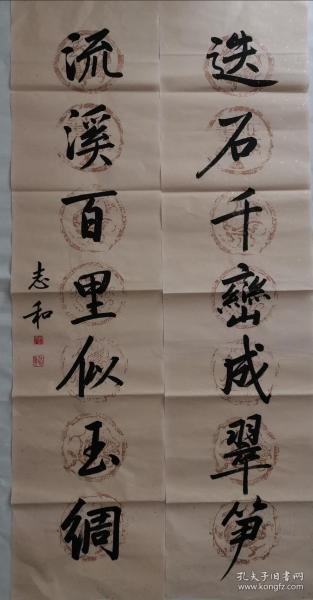 迭石千巒成翠笋
流溪百里似玉綢
志和
孔夫子旧书网
www.kongfz.com